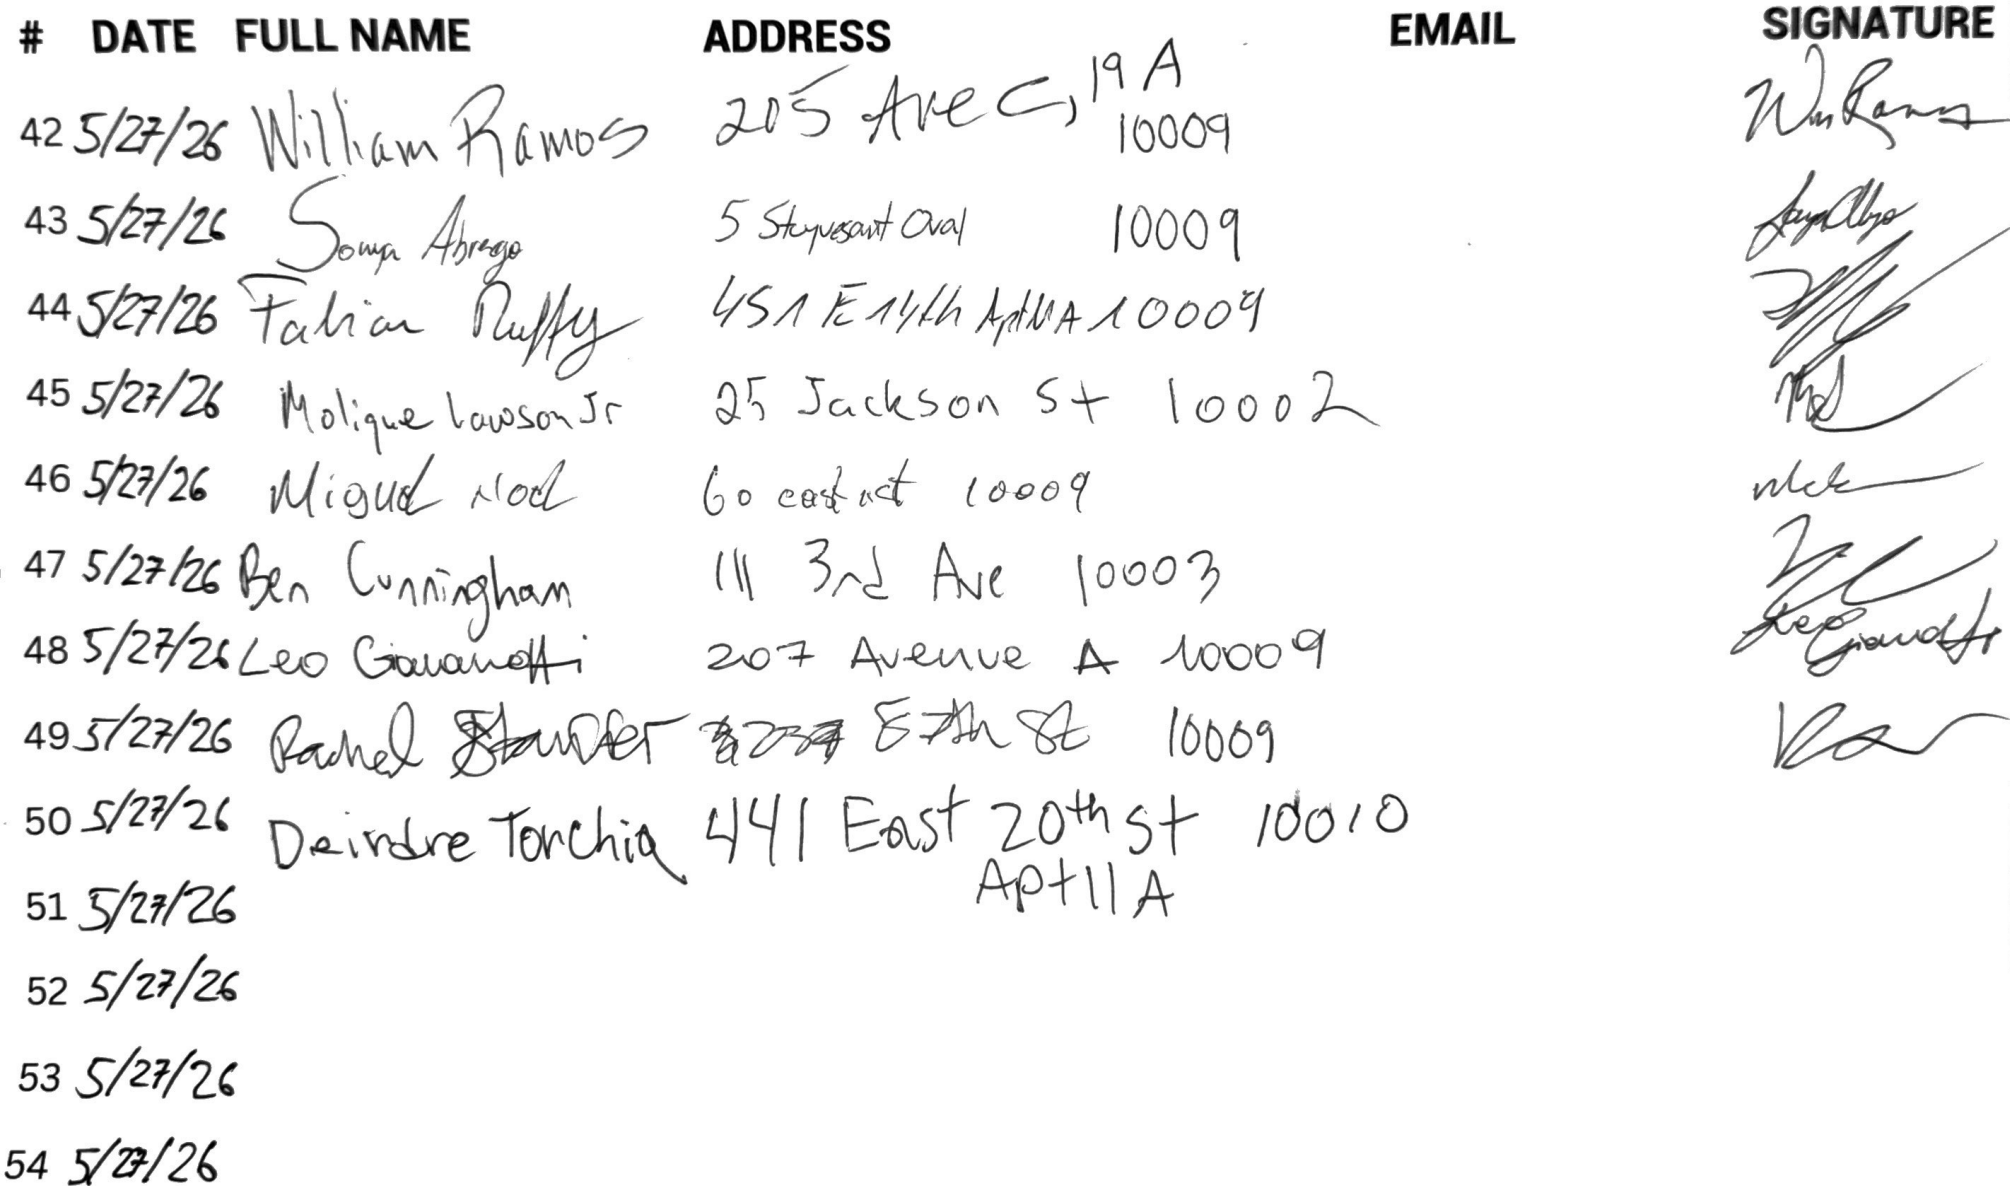 # DATE FULL NAME ADDRESS EMAIL SIGNATURE
42 5/27/26 William Ramos 205 Ave C, 19A 10009
43 5/27/26 Sonya Abrego 5 Stuyvesant Oval 10009
44 5/27/26 Fabian Ruffy 451 E 14th Apt 10009
45 5/27/26 Molique Lawson Jr 25 Jackson St 10002
46 5/27/26 Miguel Noel 60 east 10009
47 5/27/26 Ben Cunningham 111 3rd Ave 10003
48 5/27/26 Leo Giovanotti 207 Avenue A 10009
49 5/27/26 Rachel E 7th St 10009
50 5/27/26 Deirdre Torchia 441 East 20th St 10010
Apt 11A
51 5/27/26
52 5/27/26
53 5/27/26
54 5/27/26